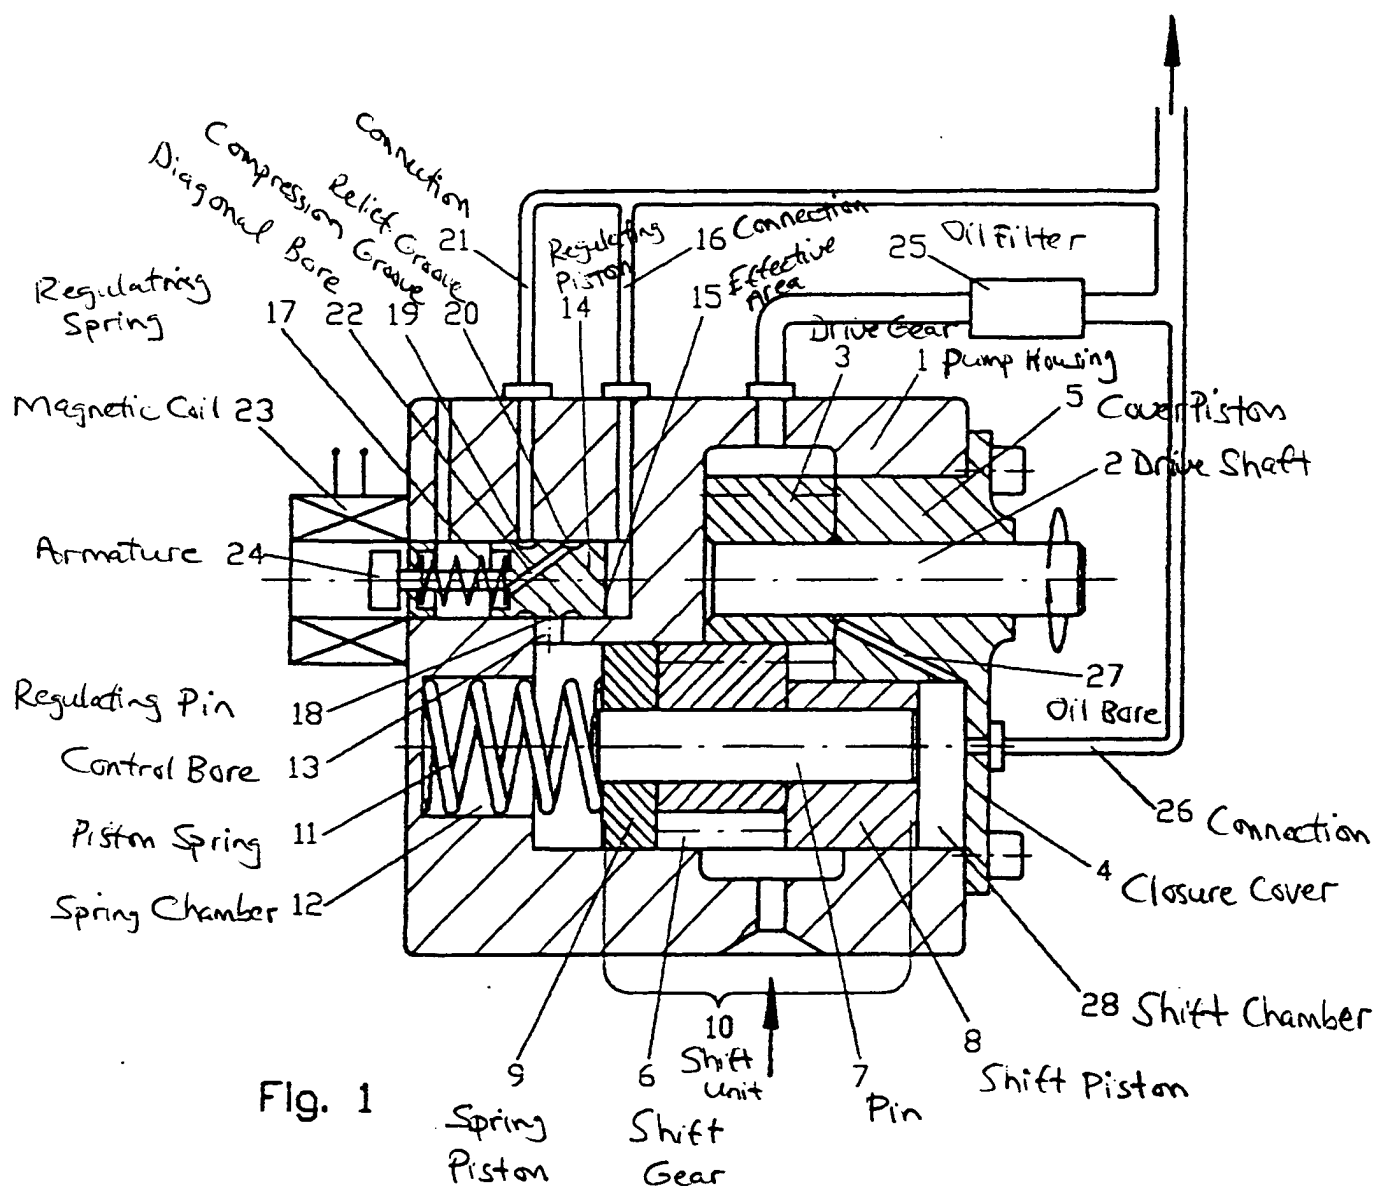 Connection
21
Relief Groove
20
Compression Groove
19
Diagonal Bore
22
Regulatning
Spring
17
Regulating
Piston
14
16 Connection
15 Effective
Area
25
Oil Filter
Drive Gear
3
1 Pump Housing
5 Cover Piston
2 Drive Shaft
Magnetic Coil 23
Armature 24
27
Oil Bore
Regulating Pin 18
Control Bore 13
Piston Spring 11
Spring Chamber 12
26 Connection
4 Closure Cover
28 Shift Chamber
10
Shift
Unit
9
Spring
Piston
6
Shift
Gear
7
Pin
8
Shift Piston
Fig. 1